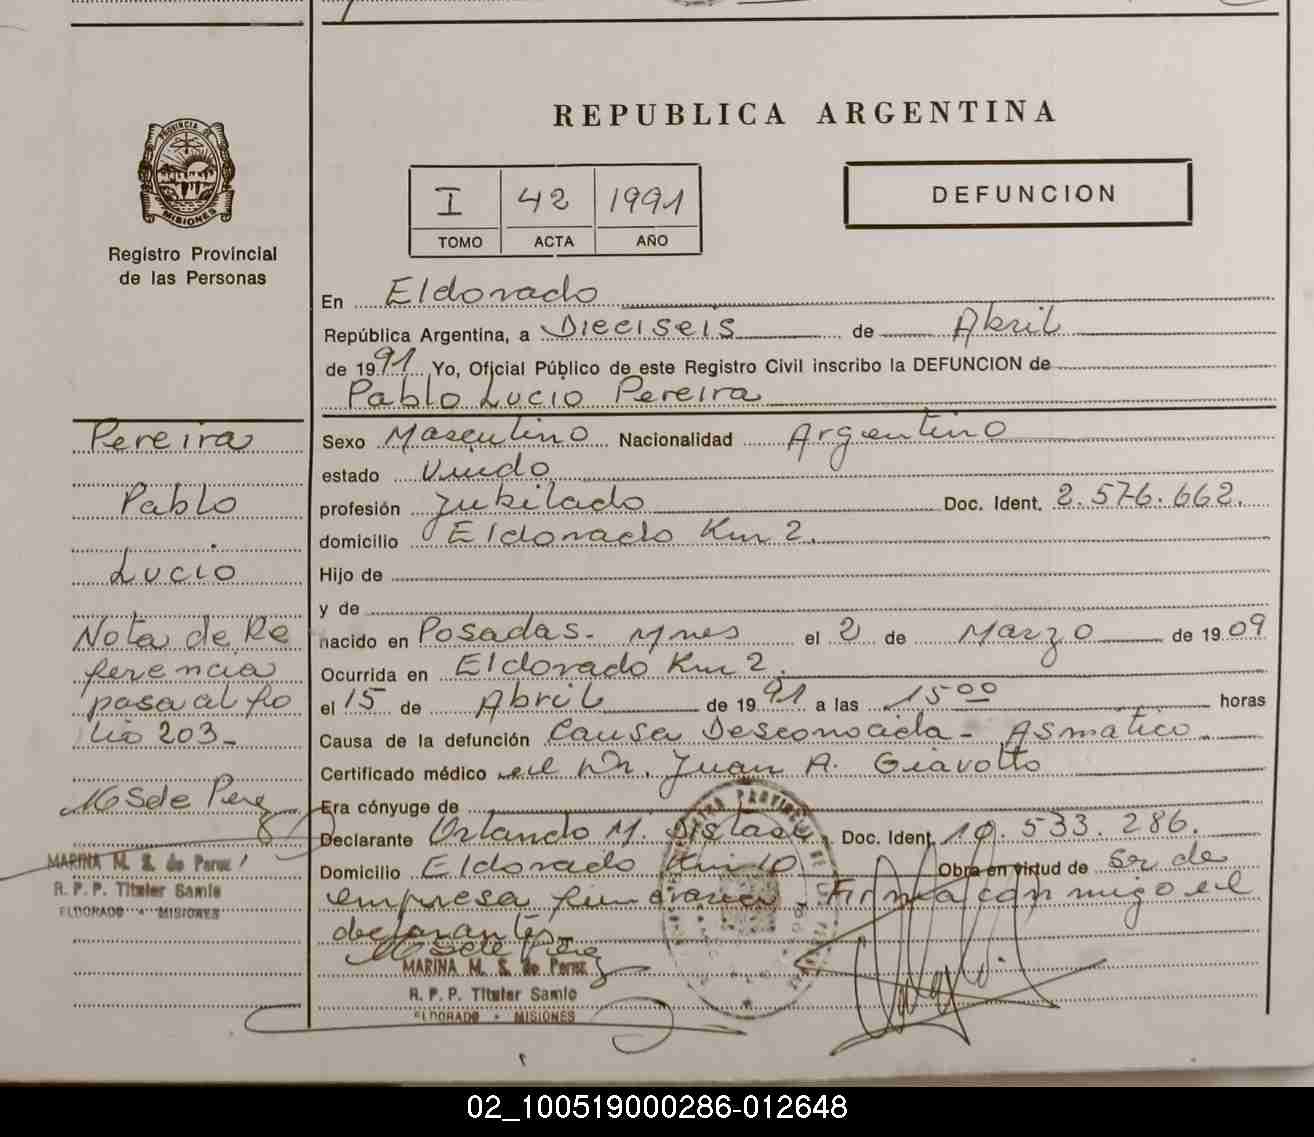 REPUBLICA ARGENTINA
PROVINCIA DE
MISIONES
Registro Provincial
de las Personas
I 42 1991
TOMO ACTA AÑO
DEFUNCION
En Eldorado
República Argentina, a Dieciseis de Abril
de 1991 Yo, Oficial Público de este Registro Civil inscribo la DEFUNCION de
Pablo Lucio Pereira
Pereira
Pablo
Lucio
Nota de Re
ferencia
pasa al fo
lio 203-
M S de Perez
MARINA M. S. de Perez
R. P. P. Titular Samic
ELDORADO - MISIONES
Sexo Masculino Nacionalidad Argentino
estado Viudo
profesión Jubilado Doc. Ident. 2.576.662.
domicilio Eldorado Km 2.
Hijo de
y de
nacido en Posadas- Mnes el 2 de Marzo de 1909
Ocurrida en Eldorado Km 2.
el 15 de Abril de 1991 a las 15 00 horas
Causa de la defunción Causa Desconocida - Asmático
Certificado médico del Dr. Juan A. Giavotto
Era cónyuge de
Declarante Orlando M. Doc. Ident. 10.533.286.
Domicilio Eldorado Km 10 Obra en virtud de ser de
empresa funeraria. Firma conmigo el
declarante-
M S de Perez
MARINA M. S. de Perez
R. P. P. Titular Samic
ELDORADO - MISIONES
02_100519000286-012648